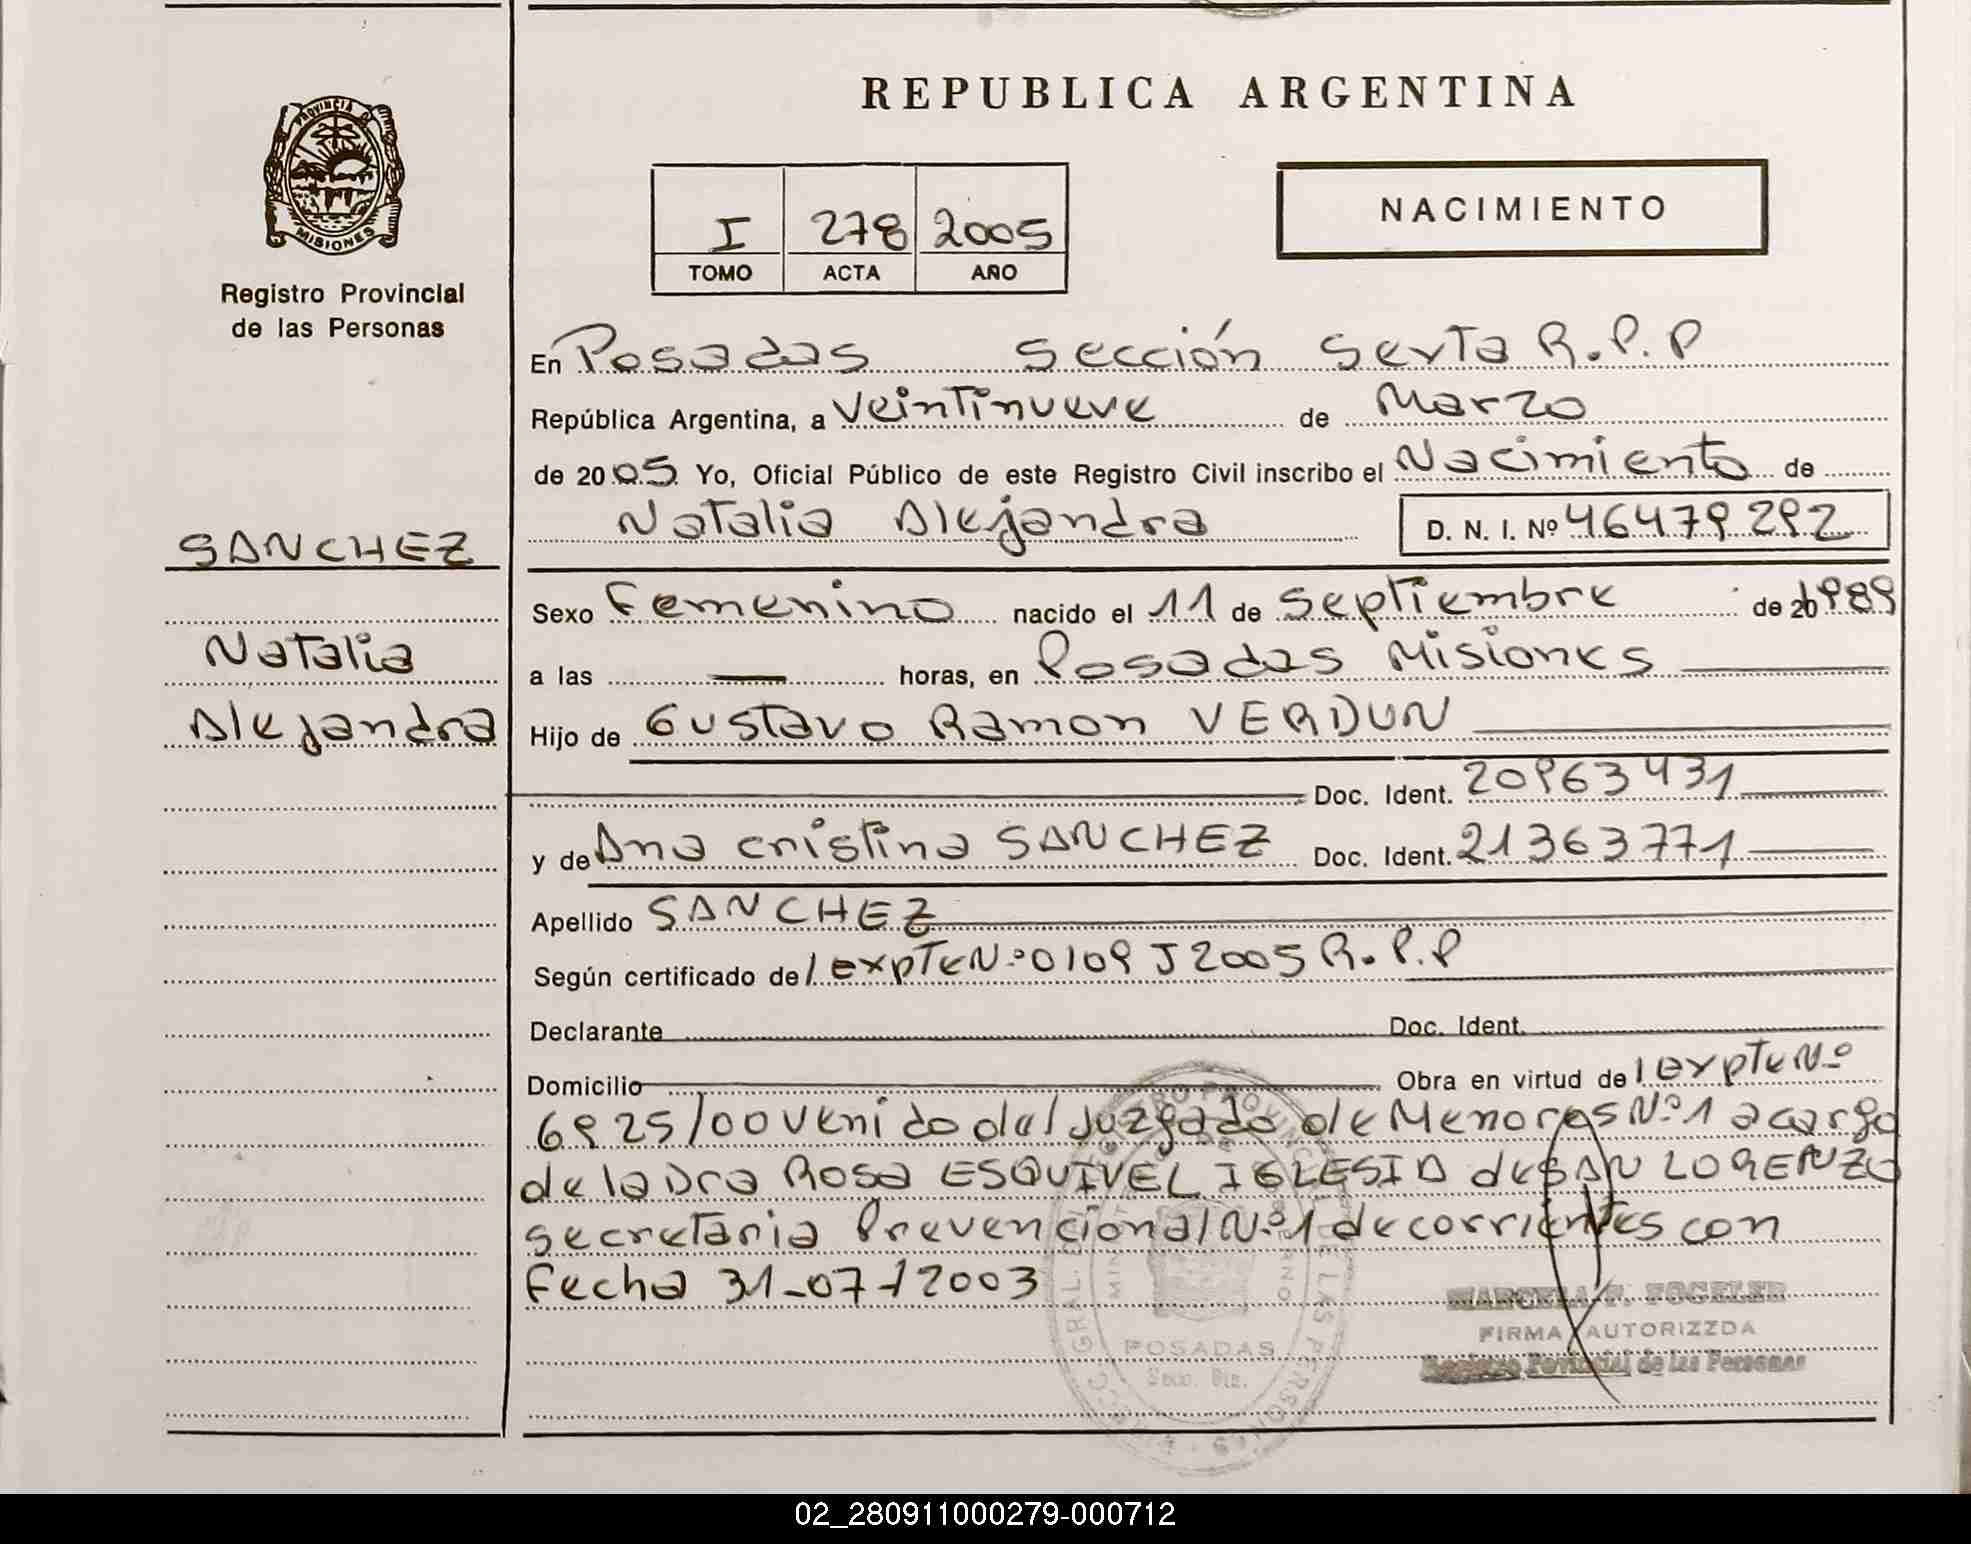 REPUBLICA ARGENTINA
PROVINCIA DE
MISIONES
Registro Provincial
de las Personas
I 278 2005
TOMO ACTA AÑO
NACIMIENTO
En Posadas Sección Sexta R.P.P
República Argentina, a Veintinueve de Marzo
de 2005 Yo, Oficial Público de este Registro Civil inscribo el Nacimiento de
Natalia Alejandra D. N. I. Nº 46479292
SANCHEZ
Natalia
Alejandra
Sexo Femenino nacido el 11 de Septiembre de 1989
a las — horas, en Posadas Misiones
Hijo de Gustavo Ramon VERDUN
Doc. Ident. 20963431
y de Ana Cristina SANCHEZ Doc. Ident. 21363771
Apellido SANCHEZ
Según certificado de l expte Nº 0109 J 2005 R.P.P
Declarante Doc. Ident.
Domicilio Obra en virtud de l expte Nº
6925/00 venido del Juzgado de Menores Nº 1 a cargo
de la Dra Rosa ESQUIVEL IGLESIA de SAN LORENZO
secretaria Prevencional Nº 1 de corrientes con
fecha 31-07-/2003
MARCELA F. FOGELER
FIRMA AUTORIZZDA
Registro Povincial de las Personas
POSADAS
02_280911000279-000712